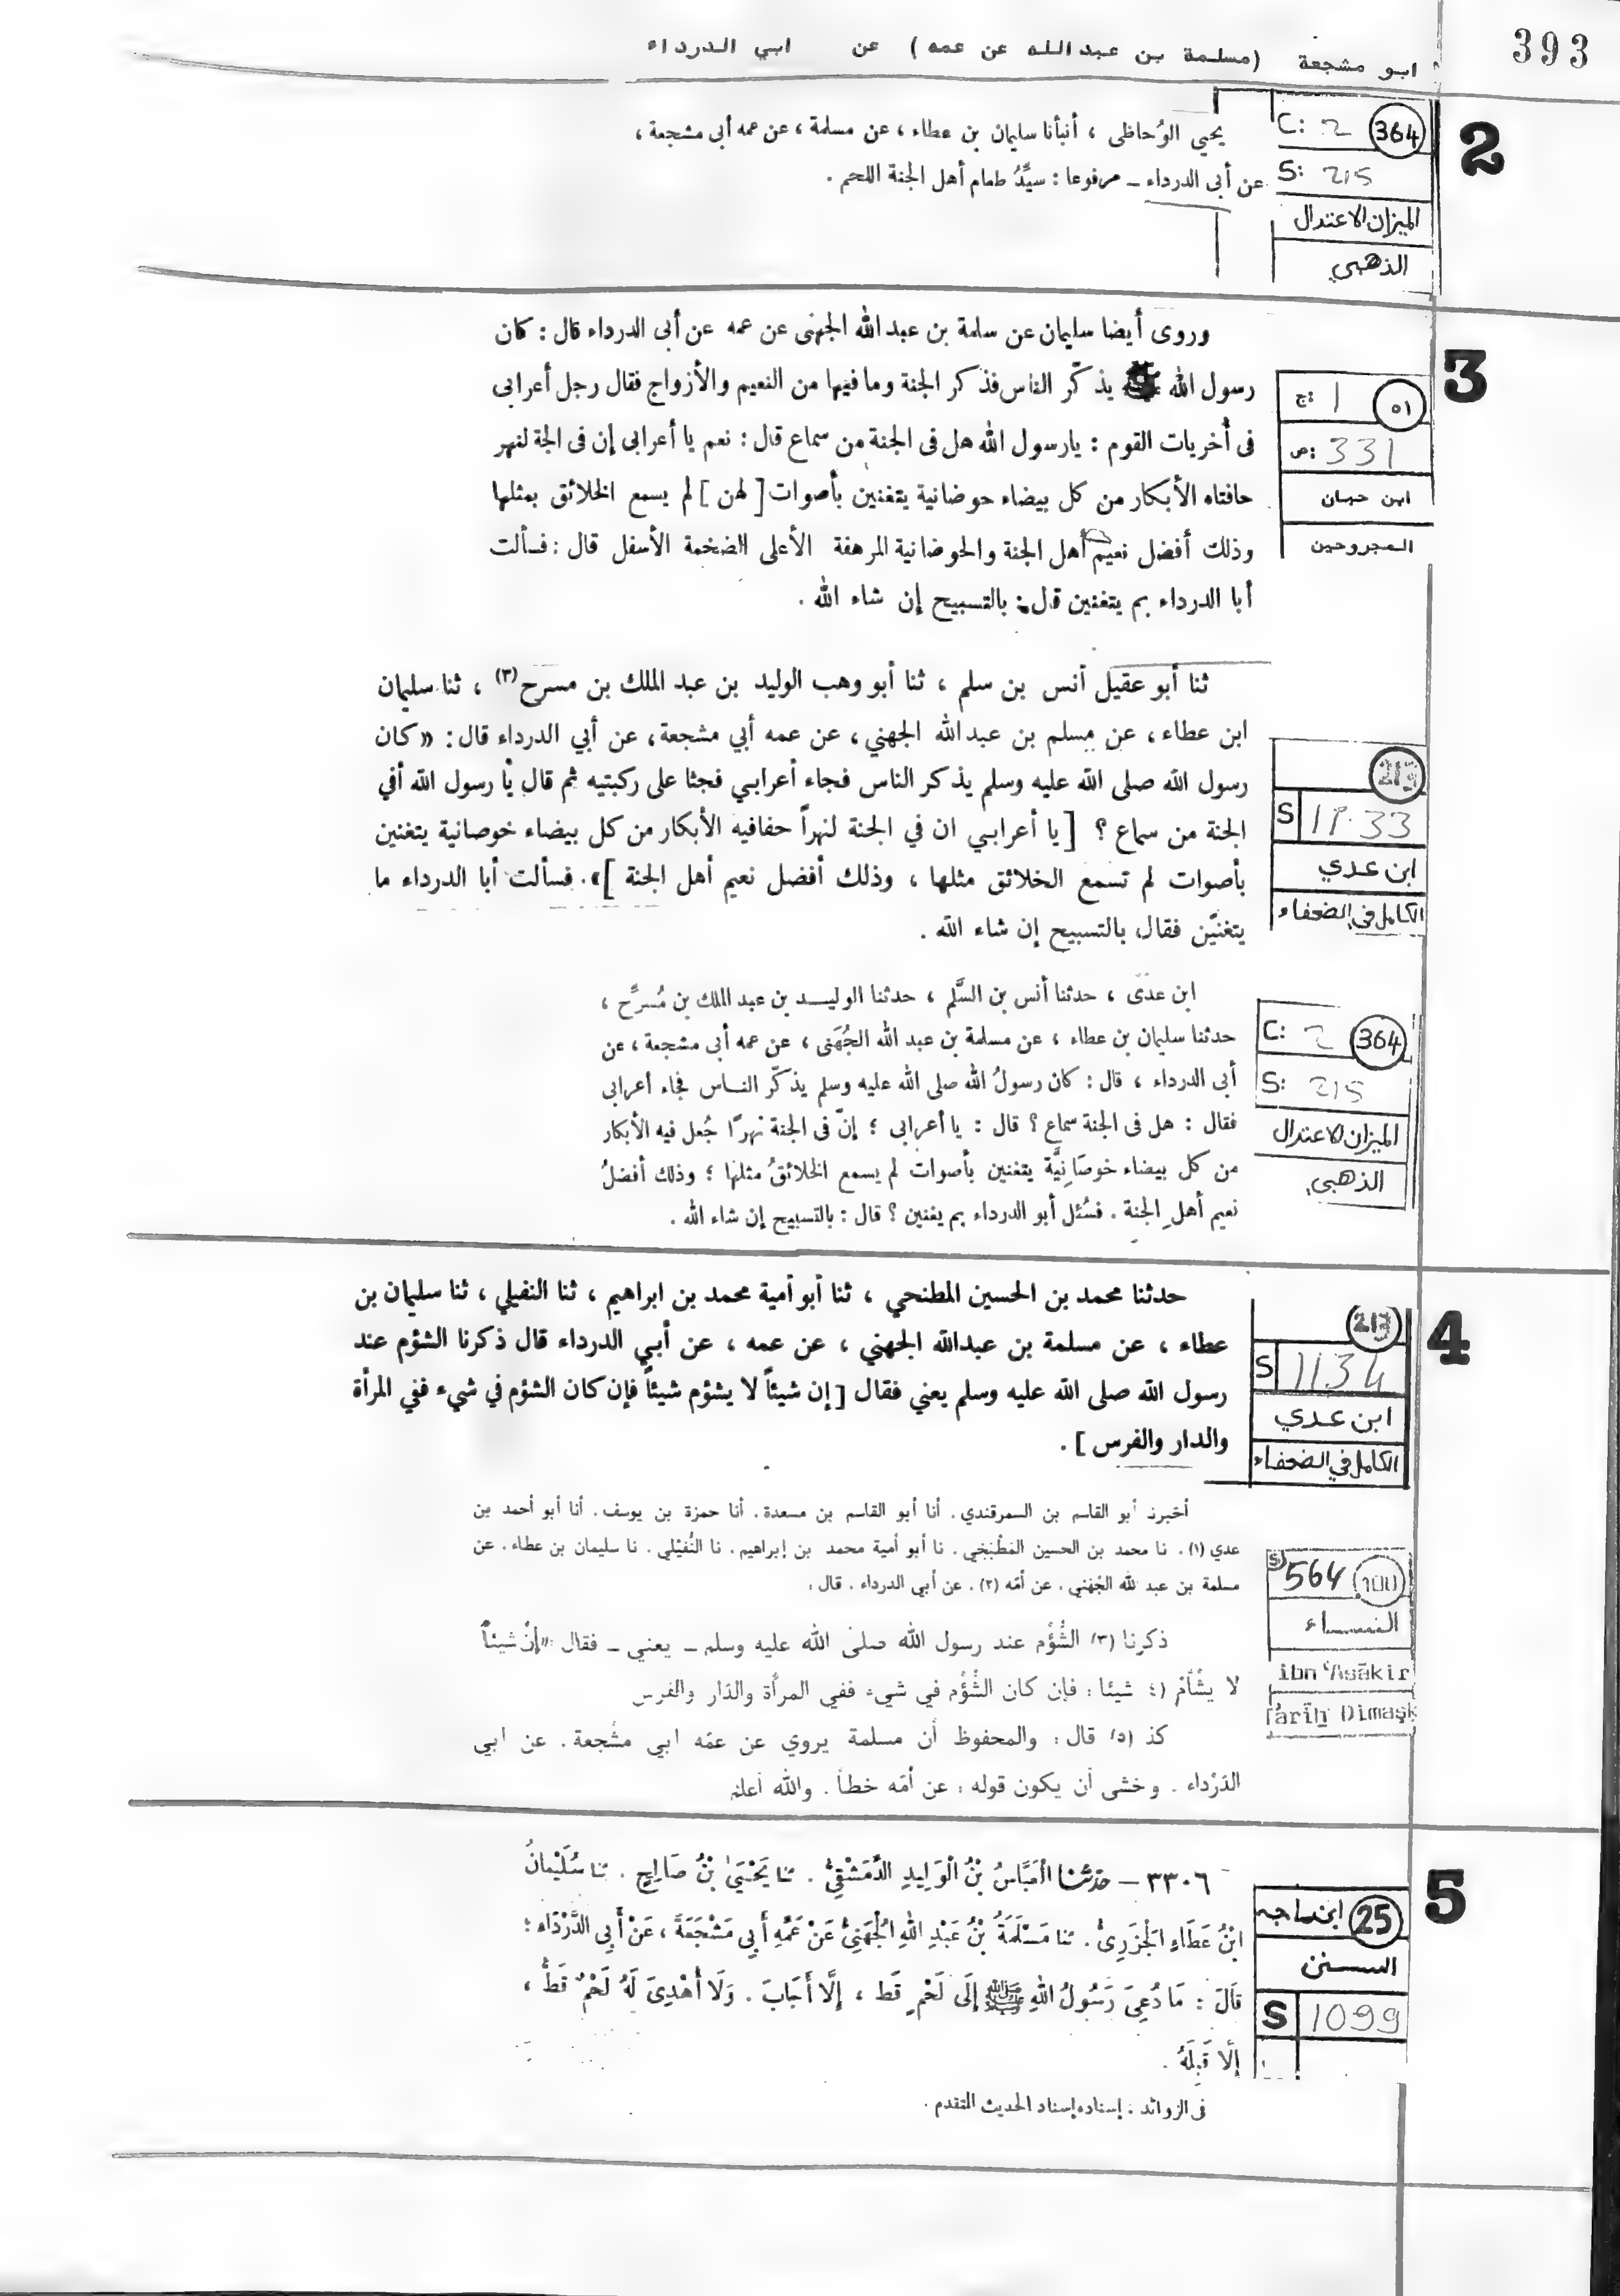 393
ابو مشجعة (مسلمة بن عبد الله عن عمه) عن ابي الدرداء
2
C: 2 364
S: 215
الميزان الاعتدال
الذهبي
يحيي الوُحاظى ، أنبأنا سليمان بن عطاء ، عن مسلمة ، عن عمه أبى مشجعة ،
عن أبى الدرداء ـ مرفوعا : سيِّدُ طعام أهل الجنة اللحم .
3
ج: 1 ٥١
ص: 331
ابن حبان
المجروحين
وروى أيضا سليمان عن سلمة بن عبد الله الجهنى عن عمه عن أبى الدرداء قال : كان
رسول الله يذكّر الناس فذكر الجنة وما فيها من النعيم والأزواج فقال رجل أعرابى
فى أُخريات القوم : يارسول الله هل فى الجنة من سماع قال : نعم يا أعرابى إن فى الجة لنهر
حافتاه الأبكار من كل بيضاء حوضانية يتغنين بأصوات [ لهن ] لم يسمع الخلائق بمثلها
وذلك أفضل نعيم أهل الجنة والحوضانية المرهفة الأعلى الضخمة الأسفل قال : فسألت
أبا الدرداء بم يتغنين قال : بالتسبيح إن شاء الله .
S 11.33
ابن عدي
الكامل في الضعفاء
ثنا أبو عقيل أنس بن سلم ، ثنا أبو وهب الوليد بن عبد الملك بن مسرح (٣) ، ثنا سليمان
ابن عطاء ، عن مسلم بن عبد الله الجهني ، عن عمه أبي مشجعة ، عن أبي الدرداء قال : «كان
رسول الله صلى الله عليه وسلم يذكر الناس فجاء أعرابي فجثا على ركبتيه ثم قال يا رسول الله أفي
الجنة من سماع ؟ [ يا أعرابي ان في الجنة لنهراً حفافيه الأبكار من كل بيضاء خوصانية يتغنين
بأصوات لم تسمع الخلائق مثلها ، وذلك أفضل نعيم أهل الجنة ]». فسألت أبا الدرداء ما
يتغنّين فقال بالتسبيح إن شاء الله .
C: 2 364
S: 215
الميزان الاعتدال
الذهبي
ابن عدى ، حدثنا أنس بن السَّلم ، حدثنا الوليد بن عبد الملك بن مُسرِّح ،
حدثنا سليمان بن عطاء ، عن مسلمة بن عبد الله الجُهَنى ، عن عمه أبى مشجعة ، عن
أبى الدرداء ، قال : كان رسولُ الله صلى الله عليه وسلم يذكّر الناس فجاء أعرابى
فقال : هل فى الجنة سماع ؟ قال : يا أعرابى ؛ إنّ فى الجنة نهرًا جُعل فيه الأبكار
من كل بيضاء خوصَانِيَّة يتغنين بأصوات لم يسمع الخلائقُ مثلها ؛ وذلك أفضلُ
نعيم أهلِ الجنة . فسُئل أبو الدرداء بم يغنين ؟ قال : بالتسبيح إن شاء الله .
4
S 1134
ابن عدي
الكامل في الضعفاء
حدثنا محمد بن الحسين المطنحي ، ثنا أبو أمية محمد بن ابراهيم ، ثنا النفيلي ، ثنا سليمان بن
عطاء ، عن مسلمة بن عبدالله الجهني ، عن عمه ، عن أبي الدرداء قال ذكرنا الشؤم عند
رسول الله صلى الله عليه وسلم يعني فقال [ إن شيئاً لا يشؤم شيئاً فإن كان الشؤم في شيء ففي المرأة
والدار والفرس ] .
S 564 100
النساء
ibn ʿAsākir
Tārīḫ Dimaşk
أخبرنا أبو القاسم بن السمرقندي . أنا أبو القاسم بن مسعدة . أنا حمزة بن يوسف . أنا أبو أحمد بن
عدي (١) . نا محمد بن الحسين المَطْبَخِي . نا أبو أمية محمد بن إبراهيم . نا النُّفَيْلي . نا سليمان بن عطاء . عن
مسلمة بن عبد الله الجُهَني . عن أمّه (٢) . عن أبي الدرداء . قال :
ذكرنا (٣) الشُّؤْم عند رسول الله صلى الله عليه وسلم ـ يعني ـ فقال : «إنّ شيئاً
لا يشْأَمْ (٤) شيئا : فإن كان الشُّؤْم في شيء ففي المرأة والدّار والفرس
كذ (٥) قال : والمحفوظ أن مسلمة يروي عن عمّه ابي مشْجعة . عن ابي
الدّرْداء . وخشى أن يكون قوله : عن أمّه خطأ . والله أعلم
5
25 ابن ماجه
السنن
S 1099
٣٣٠٦ – حَدَّثَنَا الْعَبَّاسُ بْنُ الْوَلِيدِ الدِّمَشْقِيُّ . ثنا يَحْيَىٰ بْنُ صَالِحٍ . ثنا سُلَيْمَانُ
ابْنُ عَطَاءِ الْجَزَرِيُّ . ثنا مَسْلَمَةُ بْنُ عَبْدِ اللهِ الْجُهَنِيُّ عَنْ عَمِّهِ أَبِي مَشْجَعَةَ ، عَنْ أَبِي الدَّرْدَاءِ ؛
قَالَ : مَا دُعِيَ رَسُولُ اللهِ ﷺ إِلَى لَحْمٍ قَط ، إِلَّا أَجَابَ . وَلَا أُهْدِيَ لَهُ لَحْمٌ قَطُّ ،
إِلَّا قَبِلَهُ .
فى الزوائد : إسناده إسناد الحديث المتقدم .